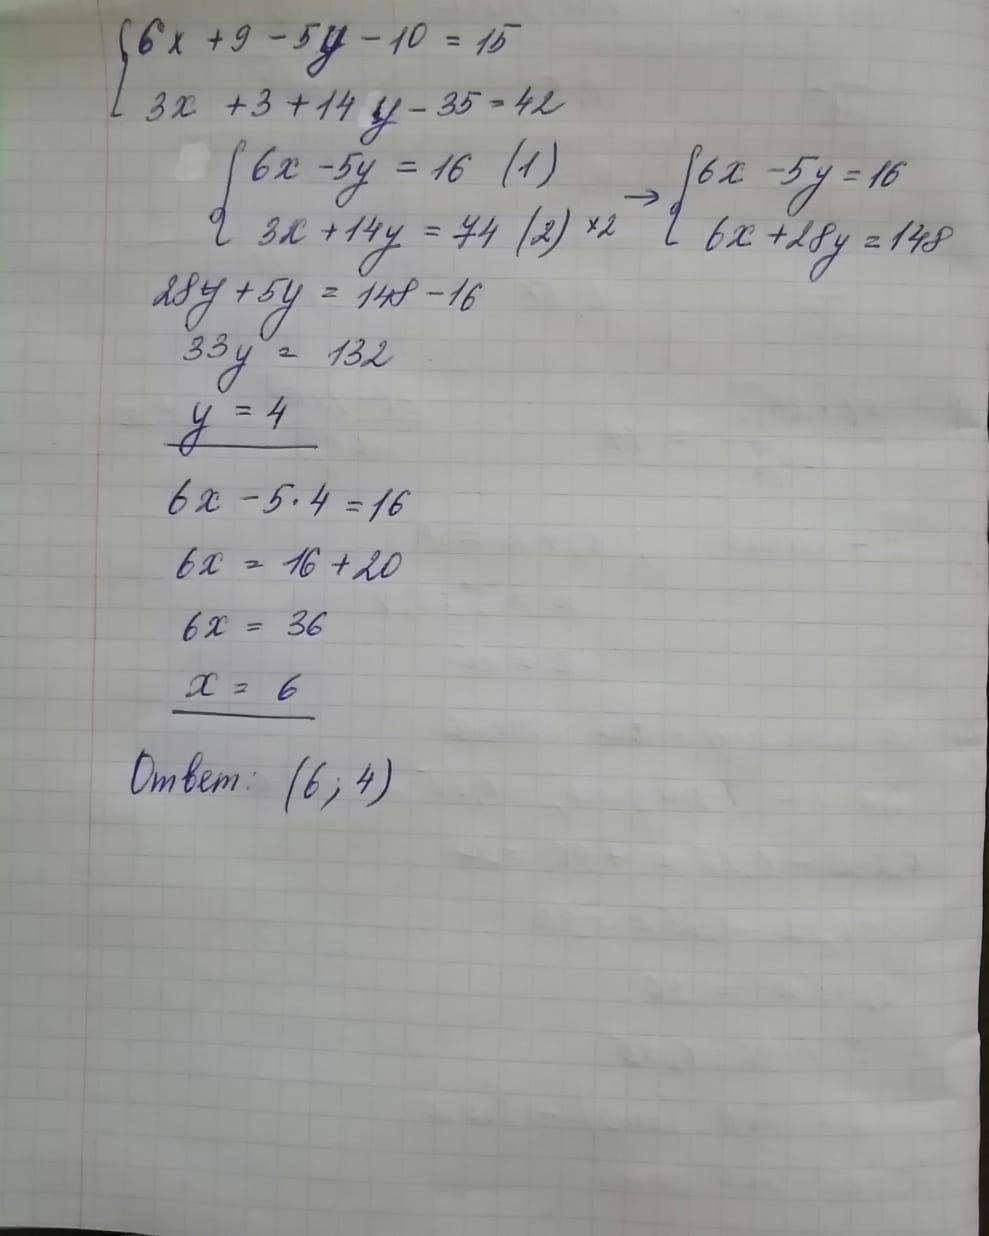 6x + 9 - 5y - 10 = 15
3x + 3 + 14y - 35 = 42
6x - 5y = 16 (1) → 6x - 5y = 16
3x + 14y = 74 (2) ×2 6x + 28y = 148
28y + 5y = 148 - 16
33y = 132
y = 4
6x - 5·4 = 16
6x = 16 + 20
6x = 36
x = 6
Ответ: (6; 4)